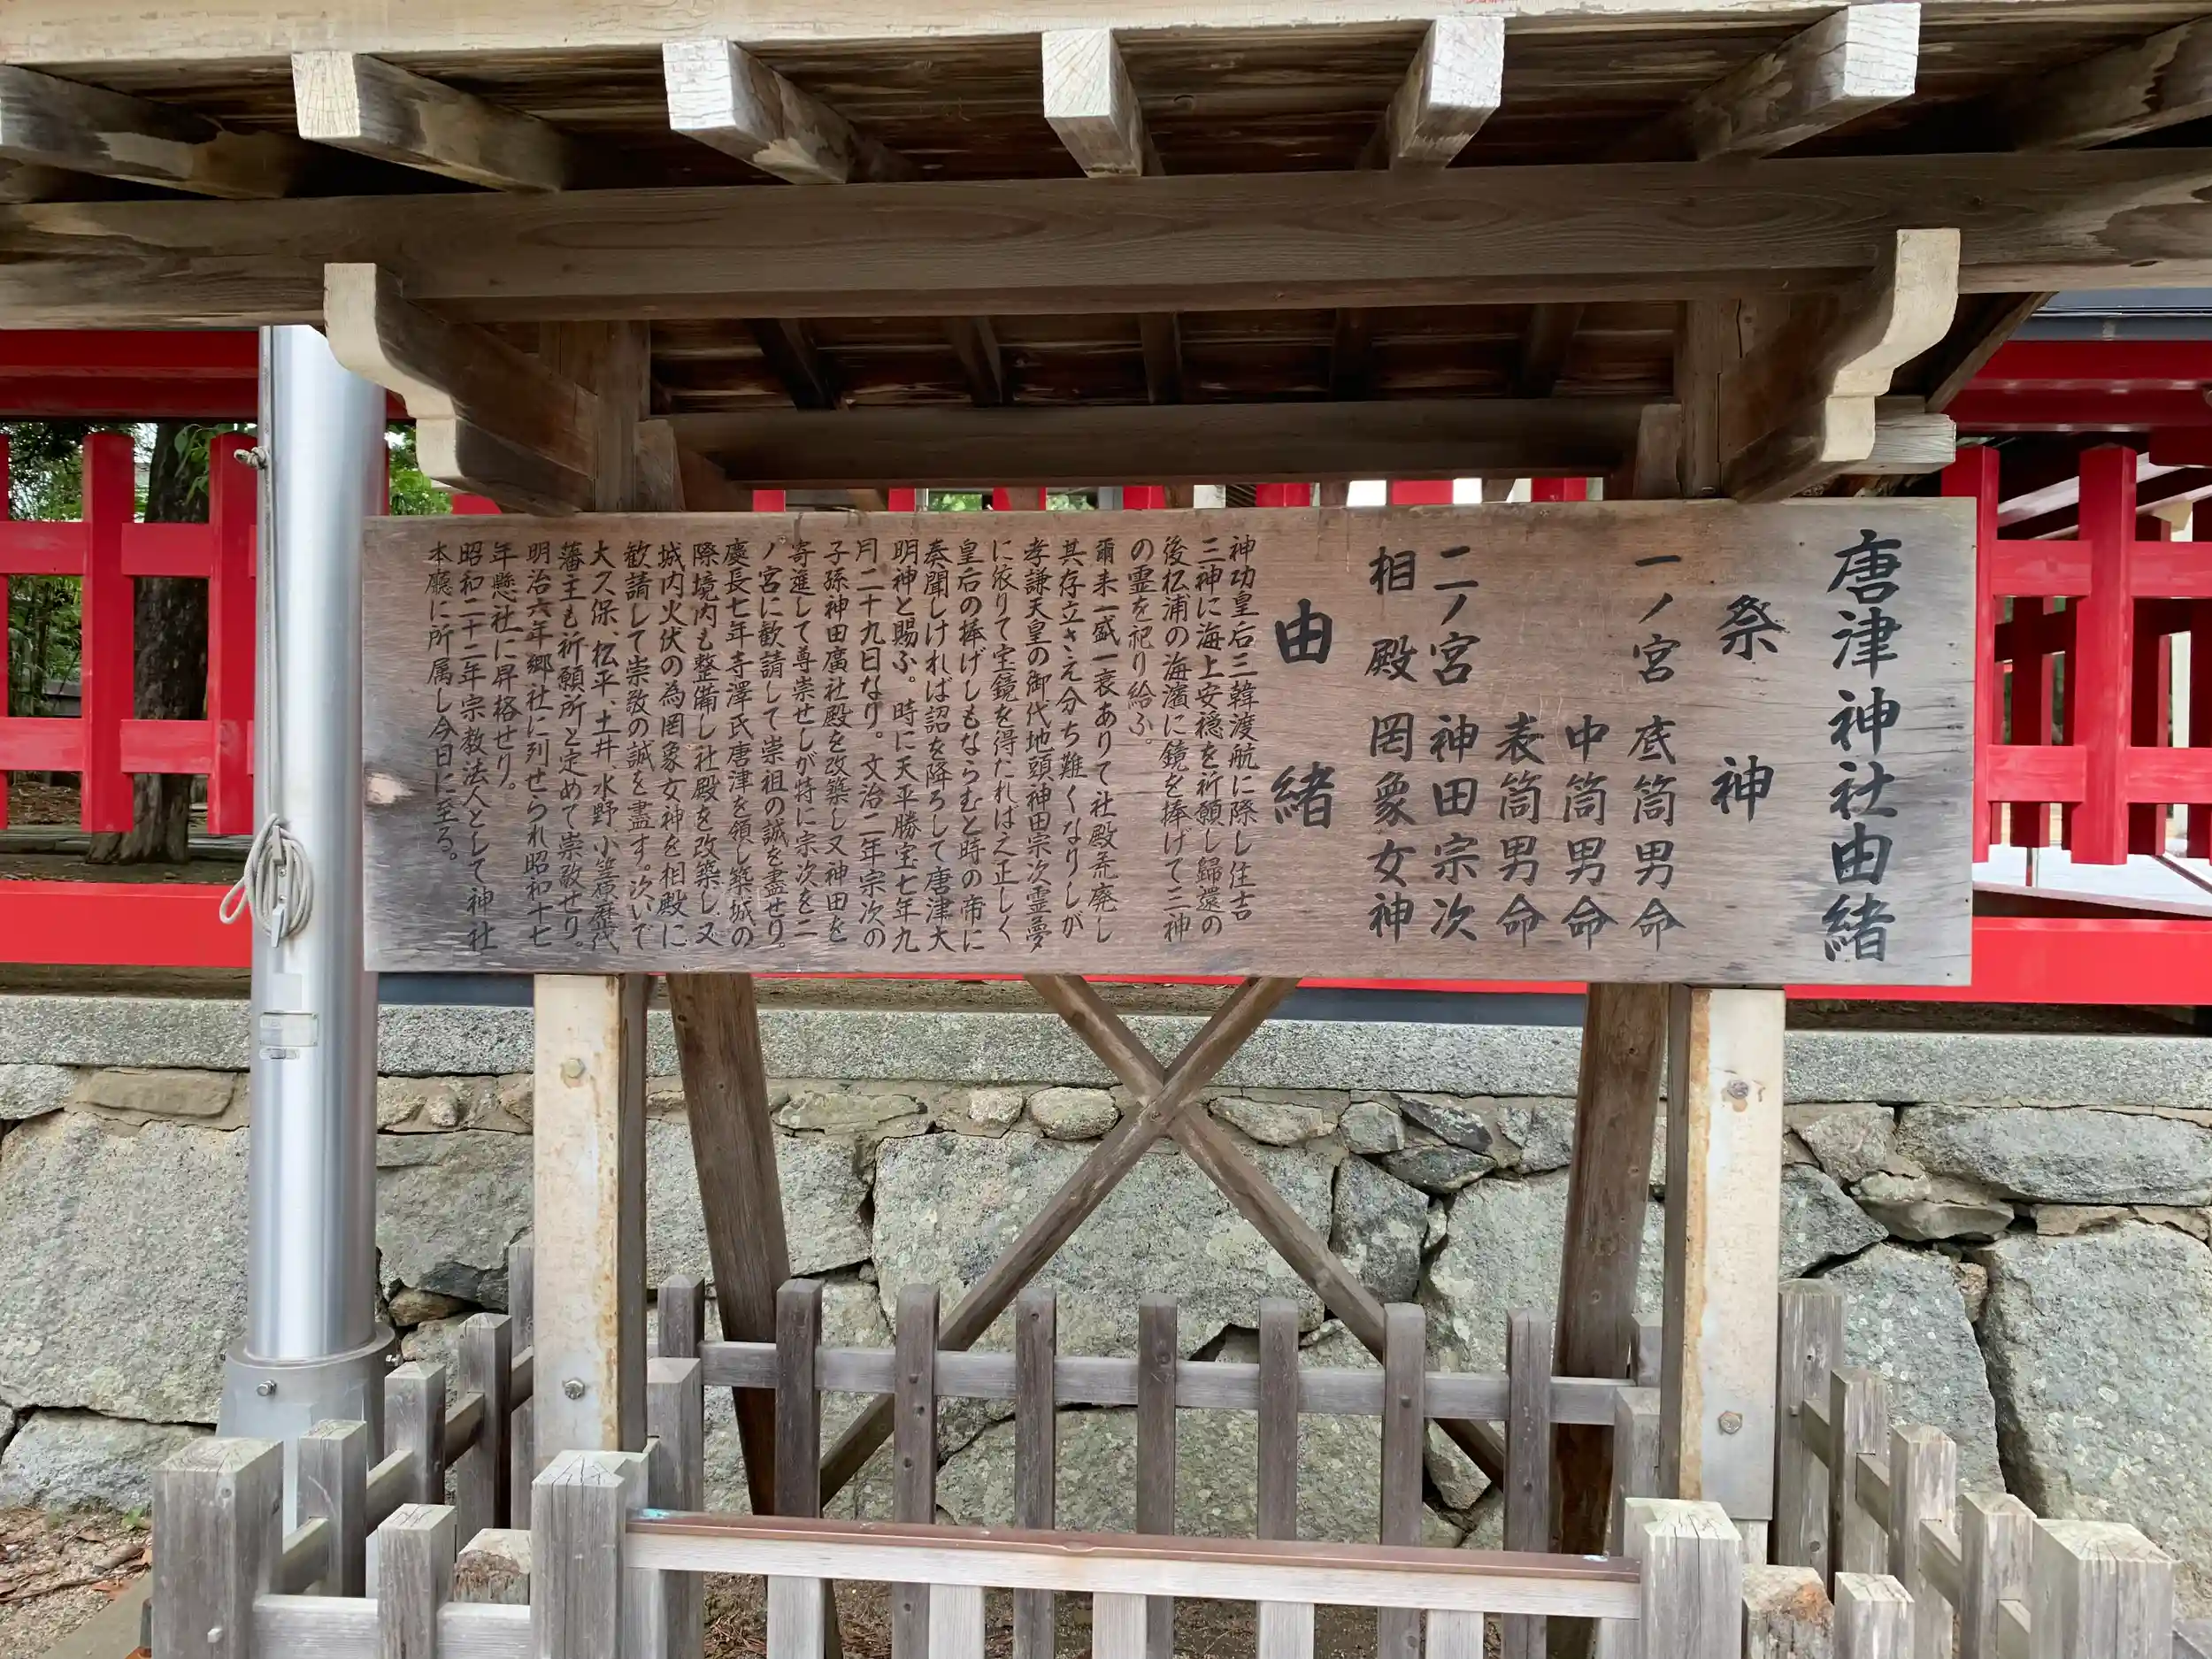 唐津神社由緒
祭神
一ノ宮 底筒男命
中筒男命
表筒男命
二ノ宮 神田宗次
相殿 罔象女神
由緒
神功皇后三韓渡航に際し住吉
三神に海上安穏を祈願し歸還の
後松浦の海濱に鏡を捧げて三神
の霊を祀り給ふ。
爾来一盛一衰ありて社殿荒廃し
其存立さえ分ち難くなりしが
孝謙天皇の御代地頭神田宗次霊夢
に依りて宝鏡を得たれば之正しく
皇后の捧げしもならむと時の帝に
奏聞しければ詔を降ろして唐津大
明神と賜ふ。時に天平勝宝七年九
月二十九日なり。文治二年宗次の
子孫神田廣社殿を改築し又神田を
寄進して尊崇せしが特に宗次を二
ノ宮に歓請して崇祖の誠を盡せり。
慶長七年寺澤氏唐津を領し築城の
際境内も整備し社殿を改築し又
城内火伏の為罔象女神を相殿に
歓請して崇敬の誠を盡す。次いで
大久保、松平、土井、水野、小笠原歴代
藩主も祈願所と定めて崇敬せり。
明治六年郷社に列せられ昭和十七
年懸社に昇格せり。
昭和二十二年宗教法人として神社
本廳に所属し今日に至る。